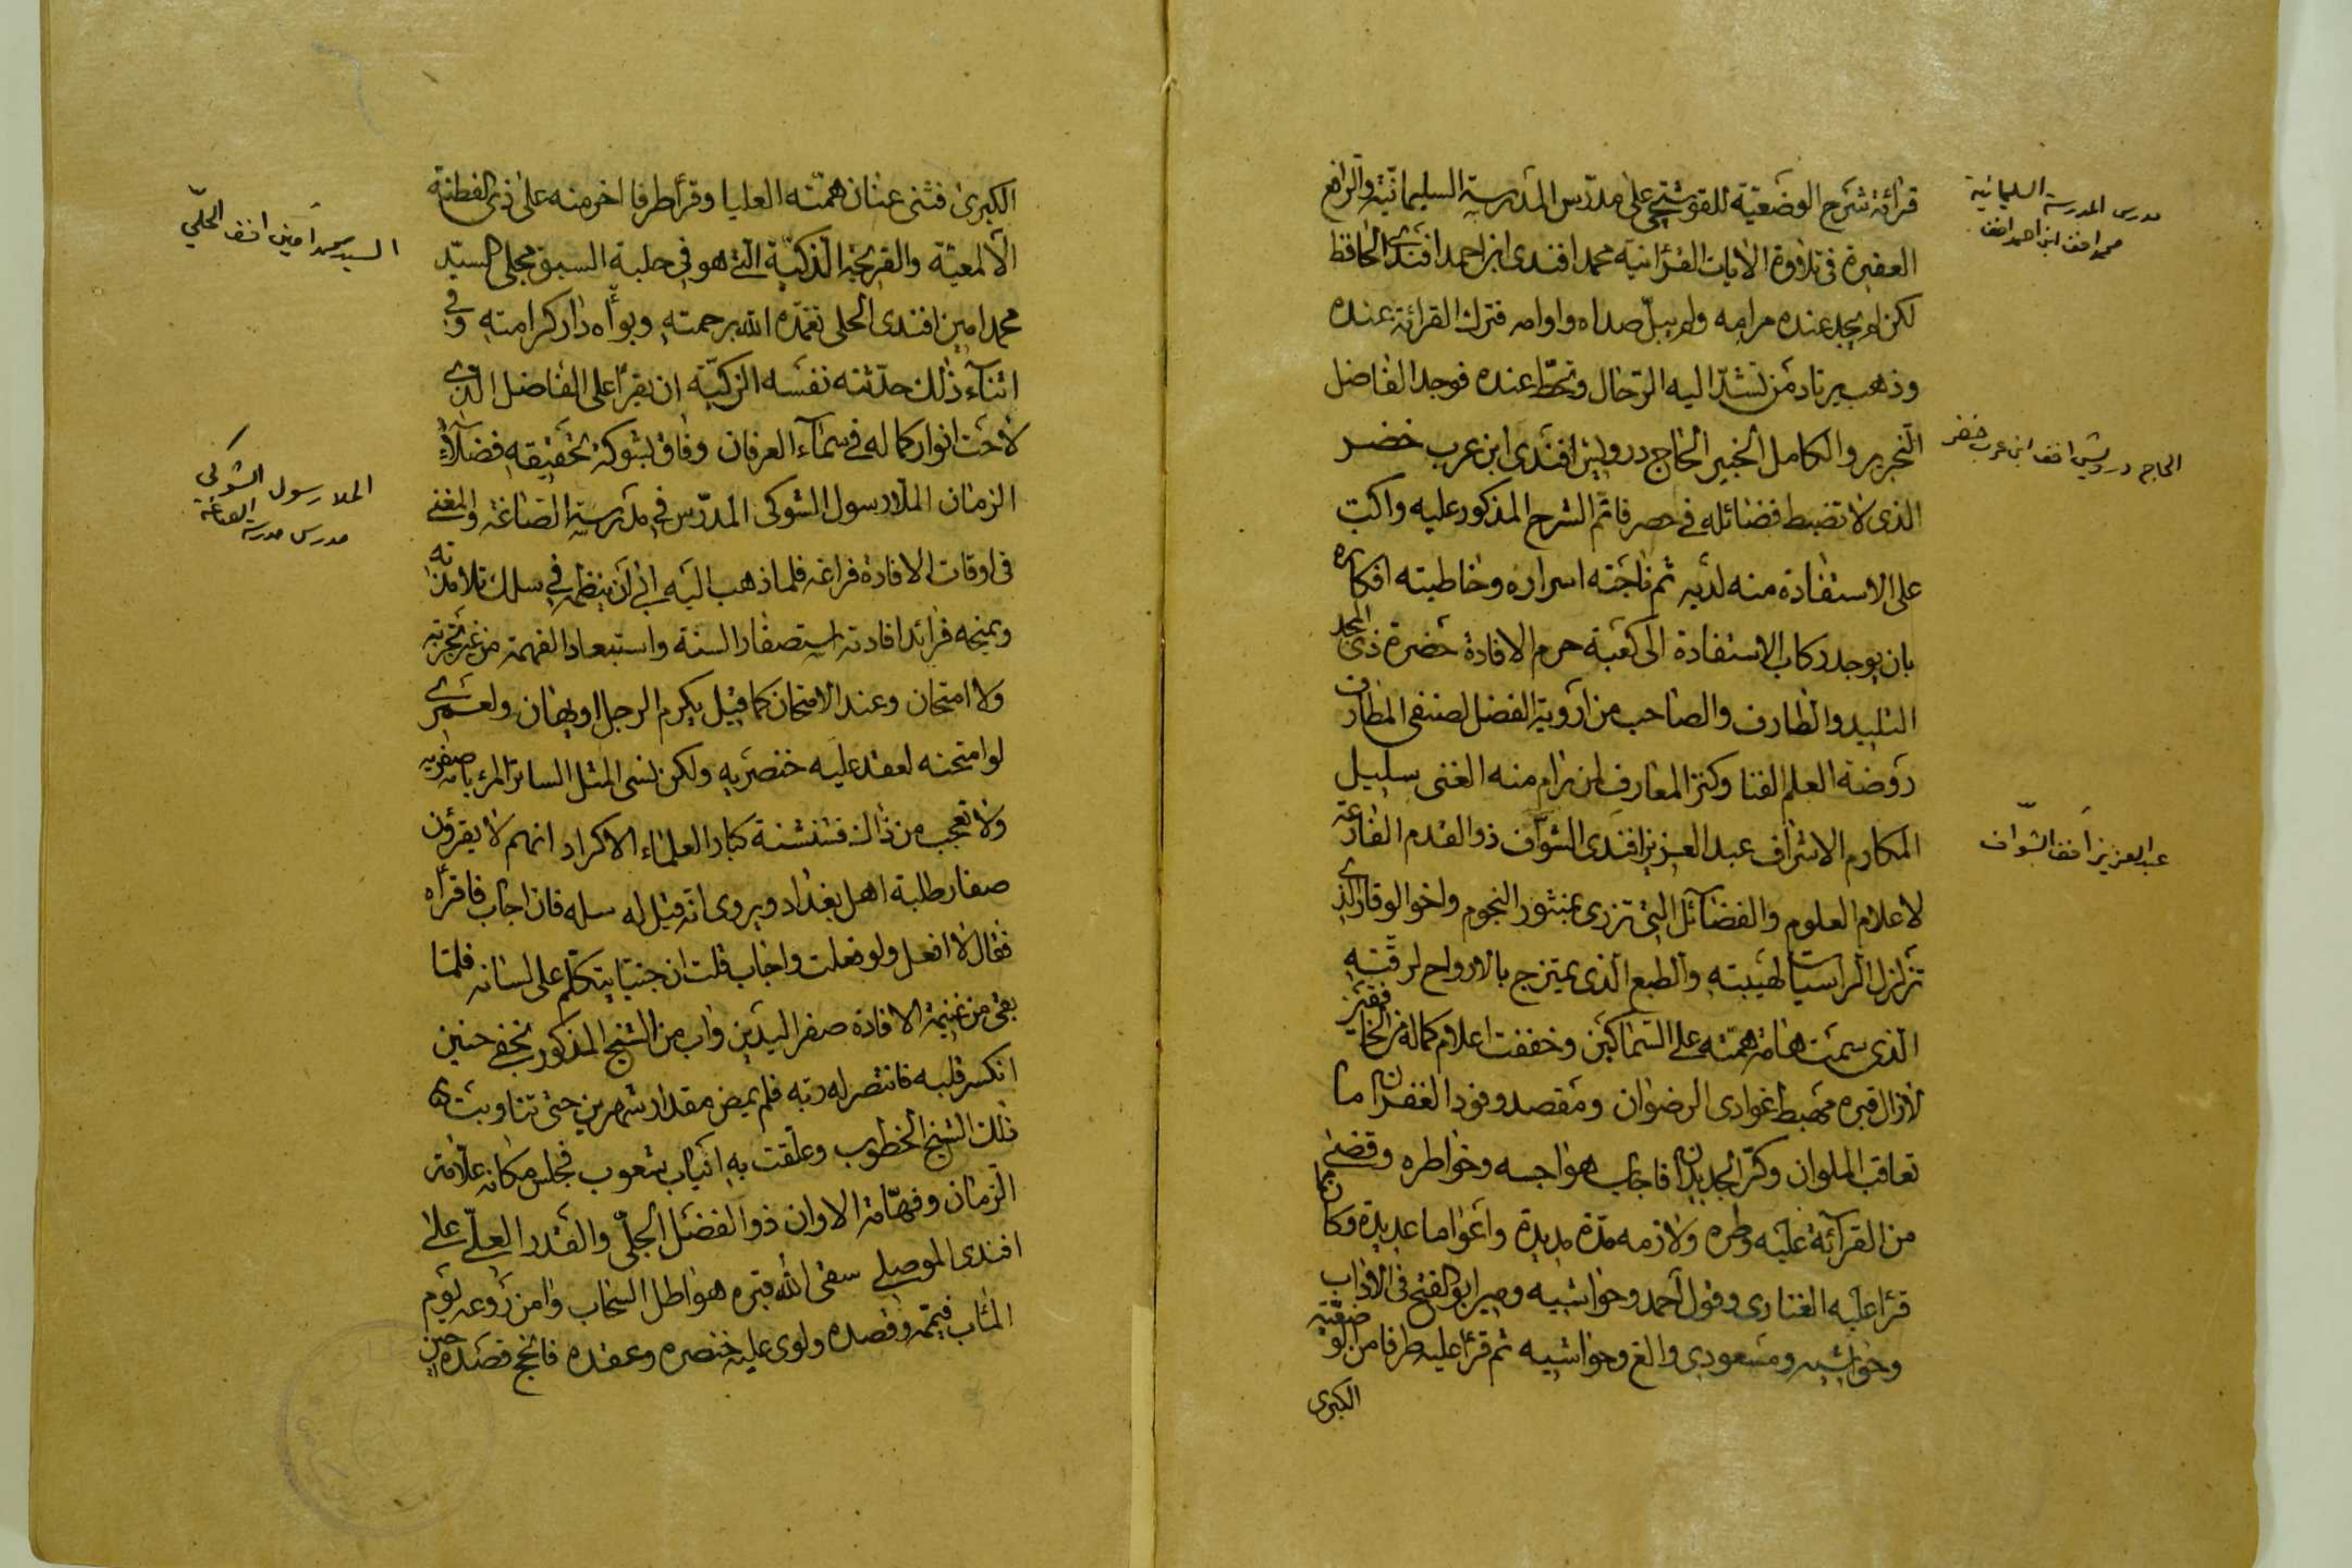 قرائة شرح الوضعية للقوشجي على مدرس المدرسة السليمانية والرافع
العقيرة في تلاوة الايات القرانية محمد افندى ابن احمد افندى الحافظ
لكن لم يجد عنده مرامه ولم يبلّ صداه واوامه فترك القرائة عنده
وذهب يرتاد من تشدّ اليه الرّحال وتحطّ عنده فوجد الفاضل
النحرير والكامل الخبير الحاج درويش افندى ابن عرب خضر
الذى لا تضبط فضائله في حصر فاتم الشرح المذكور عليه واكبّ
على الاستفادة منه لديه ثم ناجته اسراره وخاطبته افكاره
بان يوجد ركاب الاستفادة الى كعبة حرم الافادة حضرة ذى المجد
التليد والطارف والصاحب من اروية الفضل لصنفى المطارف
روضة العلم الغنا وكنز المعارف لمن رام منه الغنى سليل
المكارم الاشراف عبد العزيز افندى الشوّاف ذو القدم الفارعة
لاعلام العلوم والفضائل التى تزرى بمنثور النجوم واخو الوقار الذى
تزلزل الراسيات لهيبته والطبع الذى يمتزج بالارواح لرقّته
الذى سمت هامة همته على السماكين وخفقت اعلام كماله فى الخافقين
لازال قبره مهبط غوادى الرضوان ومقصد وفود الغفران ما
تعاقب الملوان وكرّ الجديدان فاجاب هواجسه وخواطره وقضى
من القرآئة عليه وطره ولازمه مدّة مديدة واعواما عديدة وكان مما
قرا عليه الفنارى وقول احمد وحواشيه ومير ابو الفتح في الاداب
وحواشيه ومسعودى والغ وحواشيه ثم قرا عليه طرفا من الوضعيّة
الكبرى
مدرس المدرسة السليمانية
محمد افندى ابن احمد افندى
الحاج درويش افندى ابن عرب خضر
عبد العزيز افندى الشوّاف
الكبرى فثنى عنان همّته العليا وقرأ طرفا اخر منه على ذى الفطنة
الالمعيّة والقريحة الذكيّة الّتى هو فى حلبة السبق مجلى السيّد
محمد امين افندى الحلى تغمّده الله برحمته وبوّأه دار كرامته وفى
اثنآء ذلك حدّثته نفسه الزكيّة ان يقرأ على الفاضل الذى
لاحت انوار كماله فى سمآء العرفان وفاق بشوكة تحقيقه فضلآء
الزمان الملا رسول الشوكى المدرّس في مدرسة الصّاغة والمفنى
فى اوقات الافادة فراغه فلما ذهب اليه ابى ان ينظمه فى سلك تلامذته
ويمنحه فرائد افادته استصغارا لسنه واستبعادا لفهمه من غير تجربة
ولا امتحان وعند الامتحان كما قيل يكرم الرجل او يهان ولعمرى
لو امتحنه لعقد عليه خنصريه ولكن نسى المثل السائر المرء باصغريه
ولا تعجب من ذالك فشنشنة كبار العلماء الاكراد انهم لا يقرؤن
صغار طلبة اهل بغداد ويروى انه قيل له سله فان اجاب فاقرأه
فقال لا افعل ولو فعلت واجاب قلت ان جنيّا يتكلّم على لسانه فلمّا
بقى من غنيمة الافادة صفر اليدين واب من الشيخ المذكور بخفى حنين
انكسر قلبه فانتصر له ربّه فلم يمض مقدار شهرين حتى تناوبت
ذلك الشيخ الخطوب وعلقت به انياب شعوب فجلس مكانه علّامة
الزمان وفهّامة الاوان ذو الفضل الجلىّ والقدر العلّى على
افندى الموصلى سقى الله قبره هواطل السحاب وامن روعه يوم
المآب فيمّمه وقصده ولوى عليه خنصره وعقده فانجح قصده حين
السيد محمد امين افندى الحلّى
الملا رسول الشوكى
مدرس مدرسة الصاغة